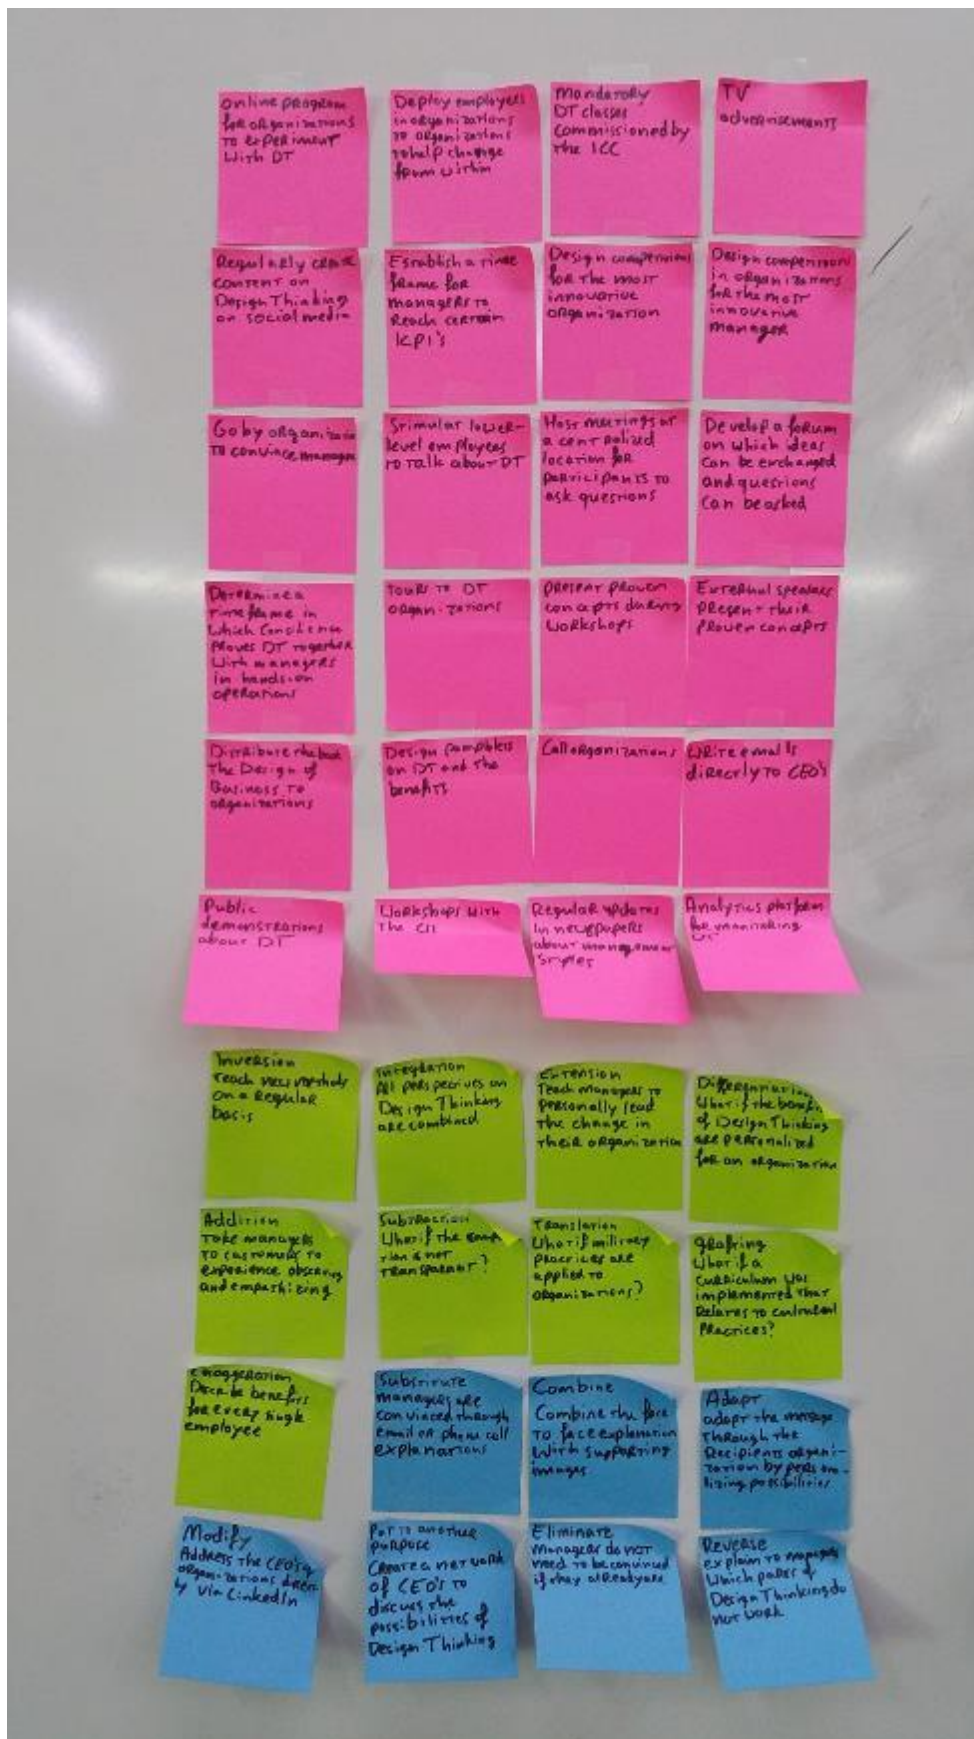 Online program
for organizations
to experiment
with DT
Deploy employees
in organizations
to organizations
to help change
from within
Mandatory
DT classes
commissioned by
the ICC
TV
advertisements
Regularly create
content on
Design Thinking
on social media
Establish a time
frame for
managers to
Reach certain
KPI's
Design competition
for the most
innovative
organization
Design competition
in organizations
for the most
innovative
manager
Go by organization
to convince manager
Stimulate lower-
level employees
to talk about DT
Host meetings at
a centralized
location for
participants to
ask questions
Develop a forum
on which ideas
can be exchanged
and questions
can be asked
Determine a
timeframe in
which
proves DT together
with managers
in hands-on
operations
Tours to DT
organizations
Present proven
concepts during
workshops
External speakers
present their
proven concepts
Distribute the book
The Design of
Business to
organizations
Design pamphlets
on DT and the
benefits
Call organizations
Write emails
directly to CEO's
Public
demonstrations
about DT
Workshops with
the
Regular updates
in newspapers
about management
styles
Analytics platform
for monitoring
Inversion
Teach new methods
on a regular
basis
Integration
All perspectives on
Design Thinking
are combined
Extension
Teach managers to
personally lead
the change in
their organization
Differentiation
What if the benefits
of Design Thinking
are personalized
for an organization
Addition
Take managers
to customers to
experience observing
and empathizing
Subtraction
What if the
is not
transparant?
Translation
What if military
practices are
applied to
organizations?
Grafting
What if a
curriculum was
implemented that
relates to current
practices?
Exaggeration
Describe benefits
for every single
employee
Substitute
managers are
convinced through
email or phone call
explanations
Combine
Combine the face
to face explanation
with supporting
images
Adapt
adapt the message
through the
recipients organi-
zation by person-
lizing possibilities
Modify
Address the CEO's of
organizations directly
by via LinkedIn
Put to another
purpose
Create a network
of CEO's to
discuss the
possibilities of
Design Thinking
Eliminate
Managers do not
need to be convinced
if they already are
Reverse
explain to managers
which parts of
Design Thinking do
not work